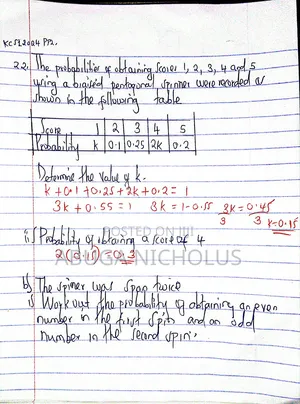 KCSE 2024 PP2.
22. The probabilities of obtaining scores 1, 2, 3, 4 and 5
using a biased pentagonal spinner were recorded as
shown in the following table
Score 1 2 3 4 5
Probability k 0.1 0.25 2k 0.2
Determine the value of k.
k + 0.1 + 0.25 + 2k + 0.2 = 1
3k + 0.55 = 1 3k = 1 - 0.55 3k = 0.45 k = 0.15
3 3
POSTED ON !!!!
ii) Probability of obtaining a score of 4
2(0.15) = 0.3
ABUGA NICHOLUS
b) The spiner was span twice
i) Work out the probability of obtaining an even
number in the first spin and an odd
number in the second spin.